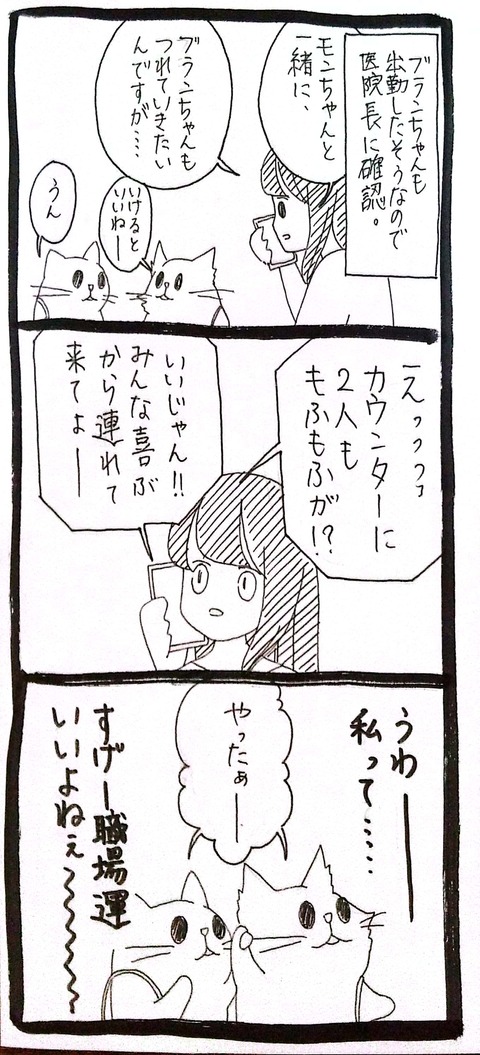 ブランちゃんも
出勤したそうなので
医院長に確認。
モンちゃんと
一緒に、
ブランちゃんも
つれていきたい
んですが…
いけると
いいねー
うん
えっっっ
カウンターに
2人も
もふもふが!?
いいじゃん!!
みんな喜ぶ
から連れて
来てよー
うわー
私って……
やったぁー
すげー職場運
いいよねぇ〜〜